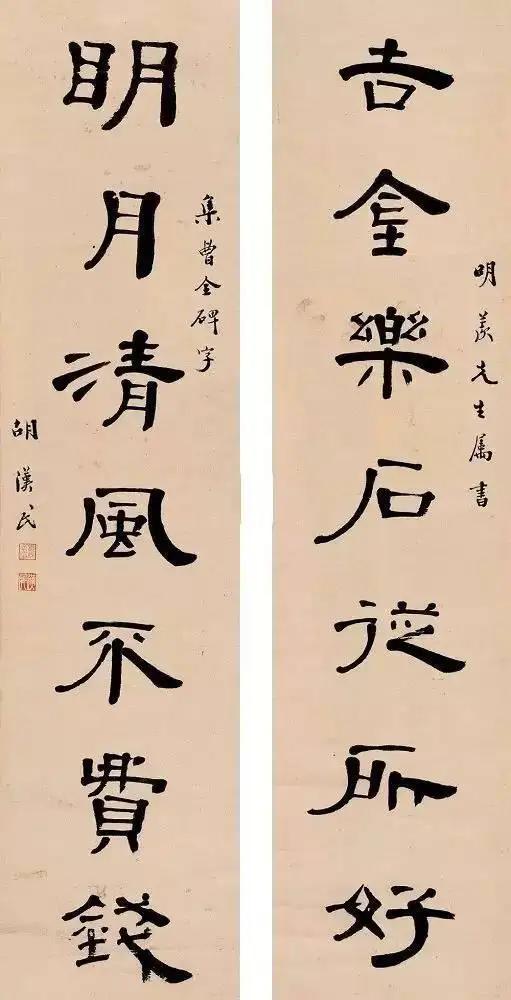 明羨先生属書
吉金樂石從所好
集曹全碑字
明月清風不費錢
胡漢民